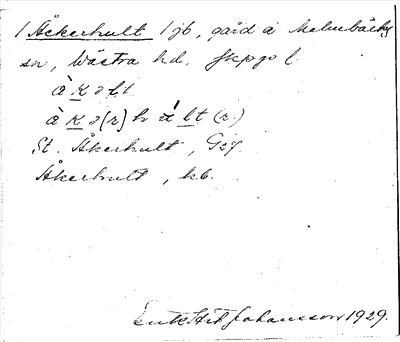 / Åkerhult / jb, gård å Malmbäcks
sn, Västra hd. Jkpgs l.
à k ə l t
à k ə (r) h ù l t (r.)
St. Åkerhult, G27.
Åkerhult, kb.
Johansson 1929.